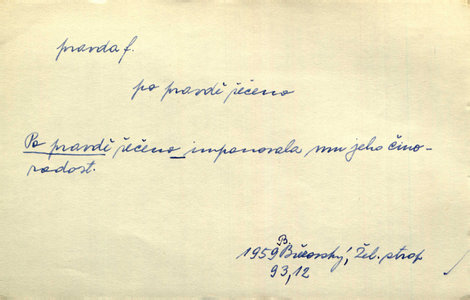 pravda f.
po pravdě řečeno
Po pravdě řečeno imponovala mu jeho čino-
rodost.
1959 B. Březovský, Žel. strop
93,12